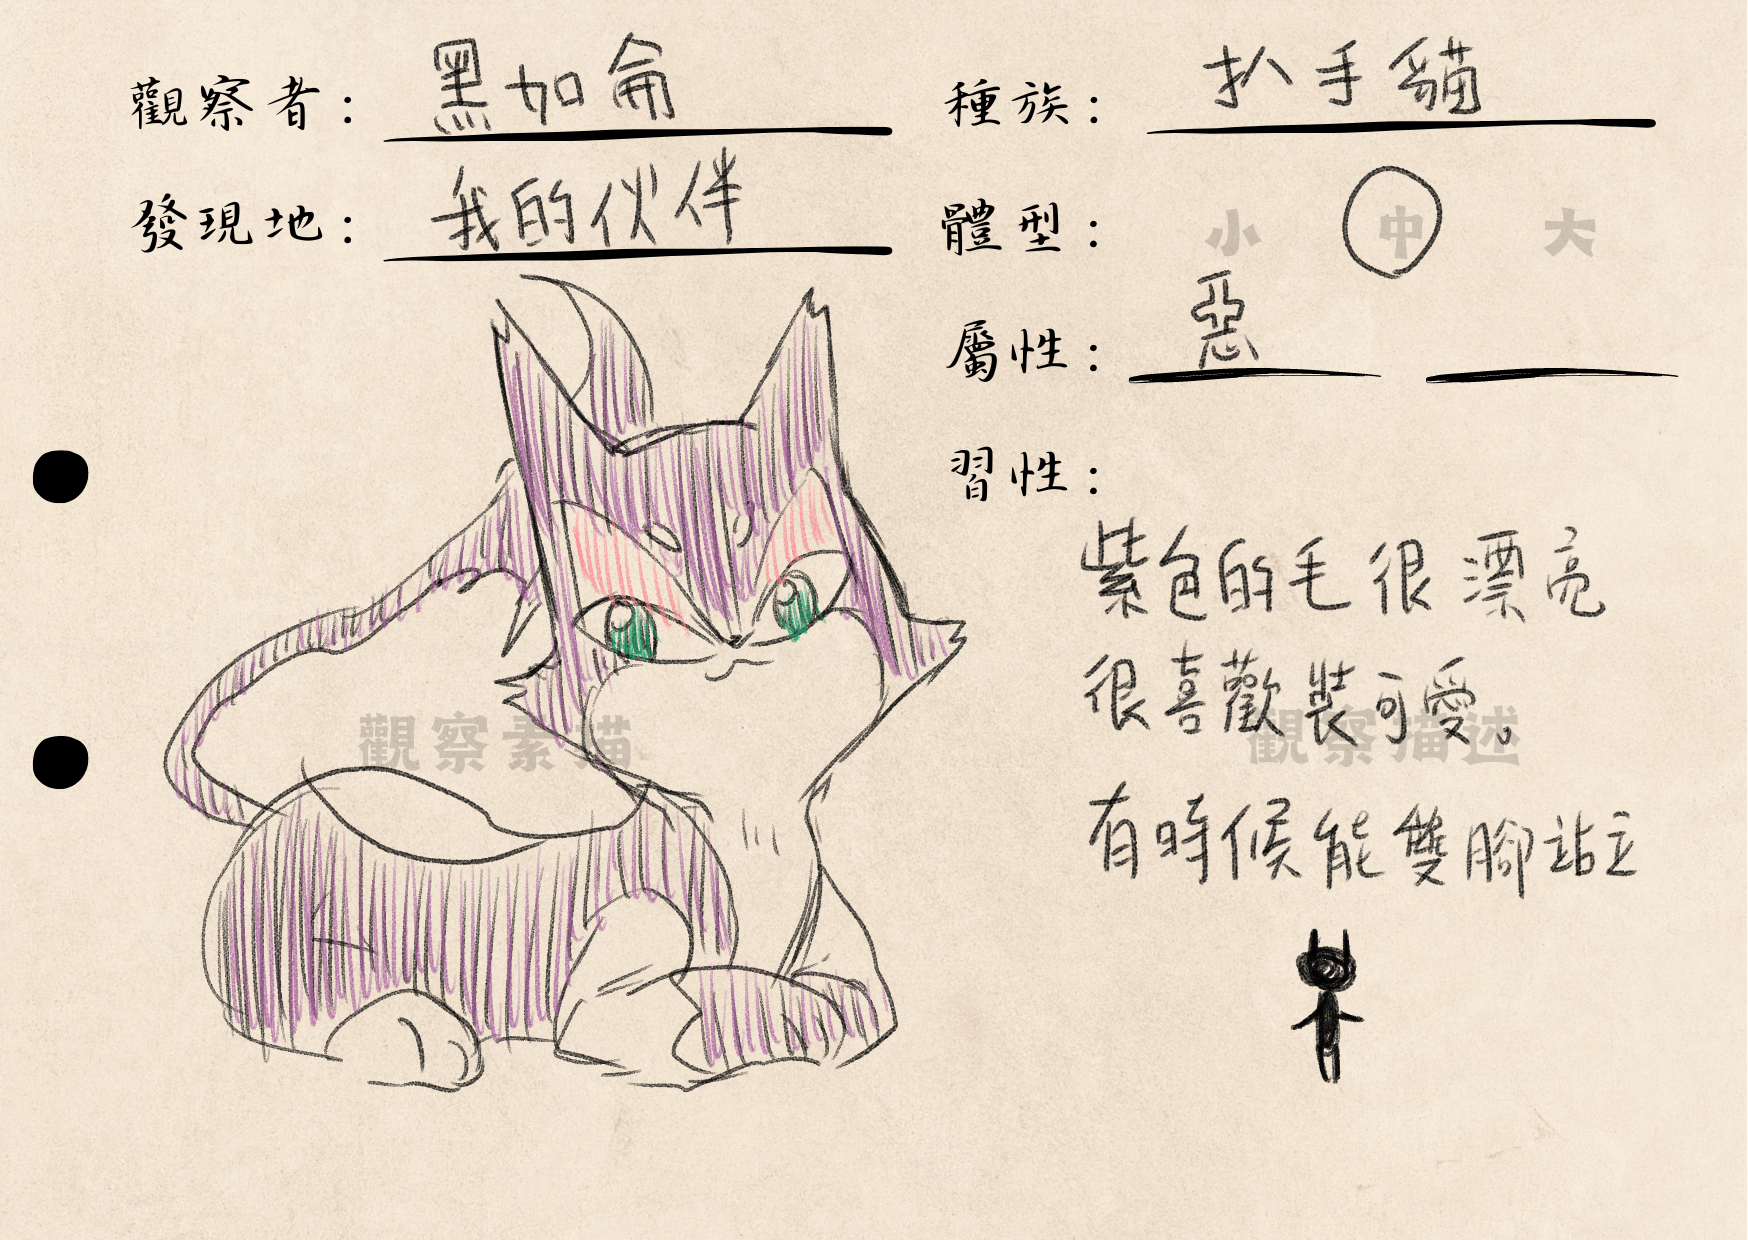 觀察者： 黑加侖
種族： 扒手貓
發現地： 我的伙伴
體型： 小 中 大
屬性： 惡
習性：
紫色的毛很漂亮
很喜歡裝可愛。
觀察素描
觀察描述
有時候能雙腳站立